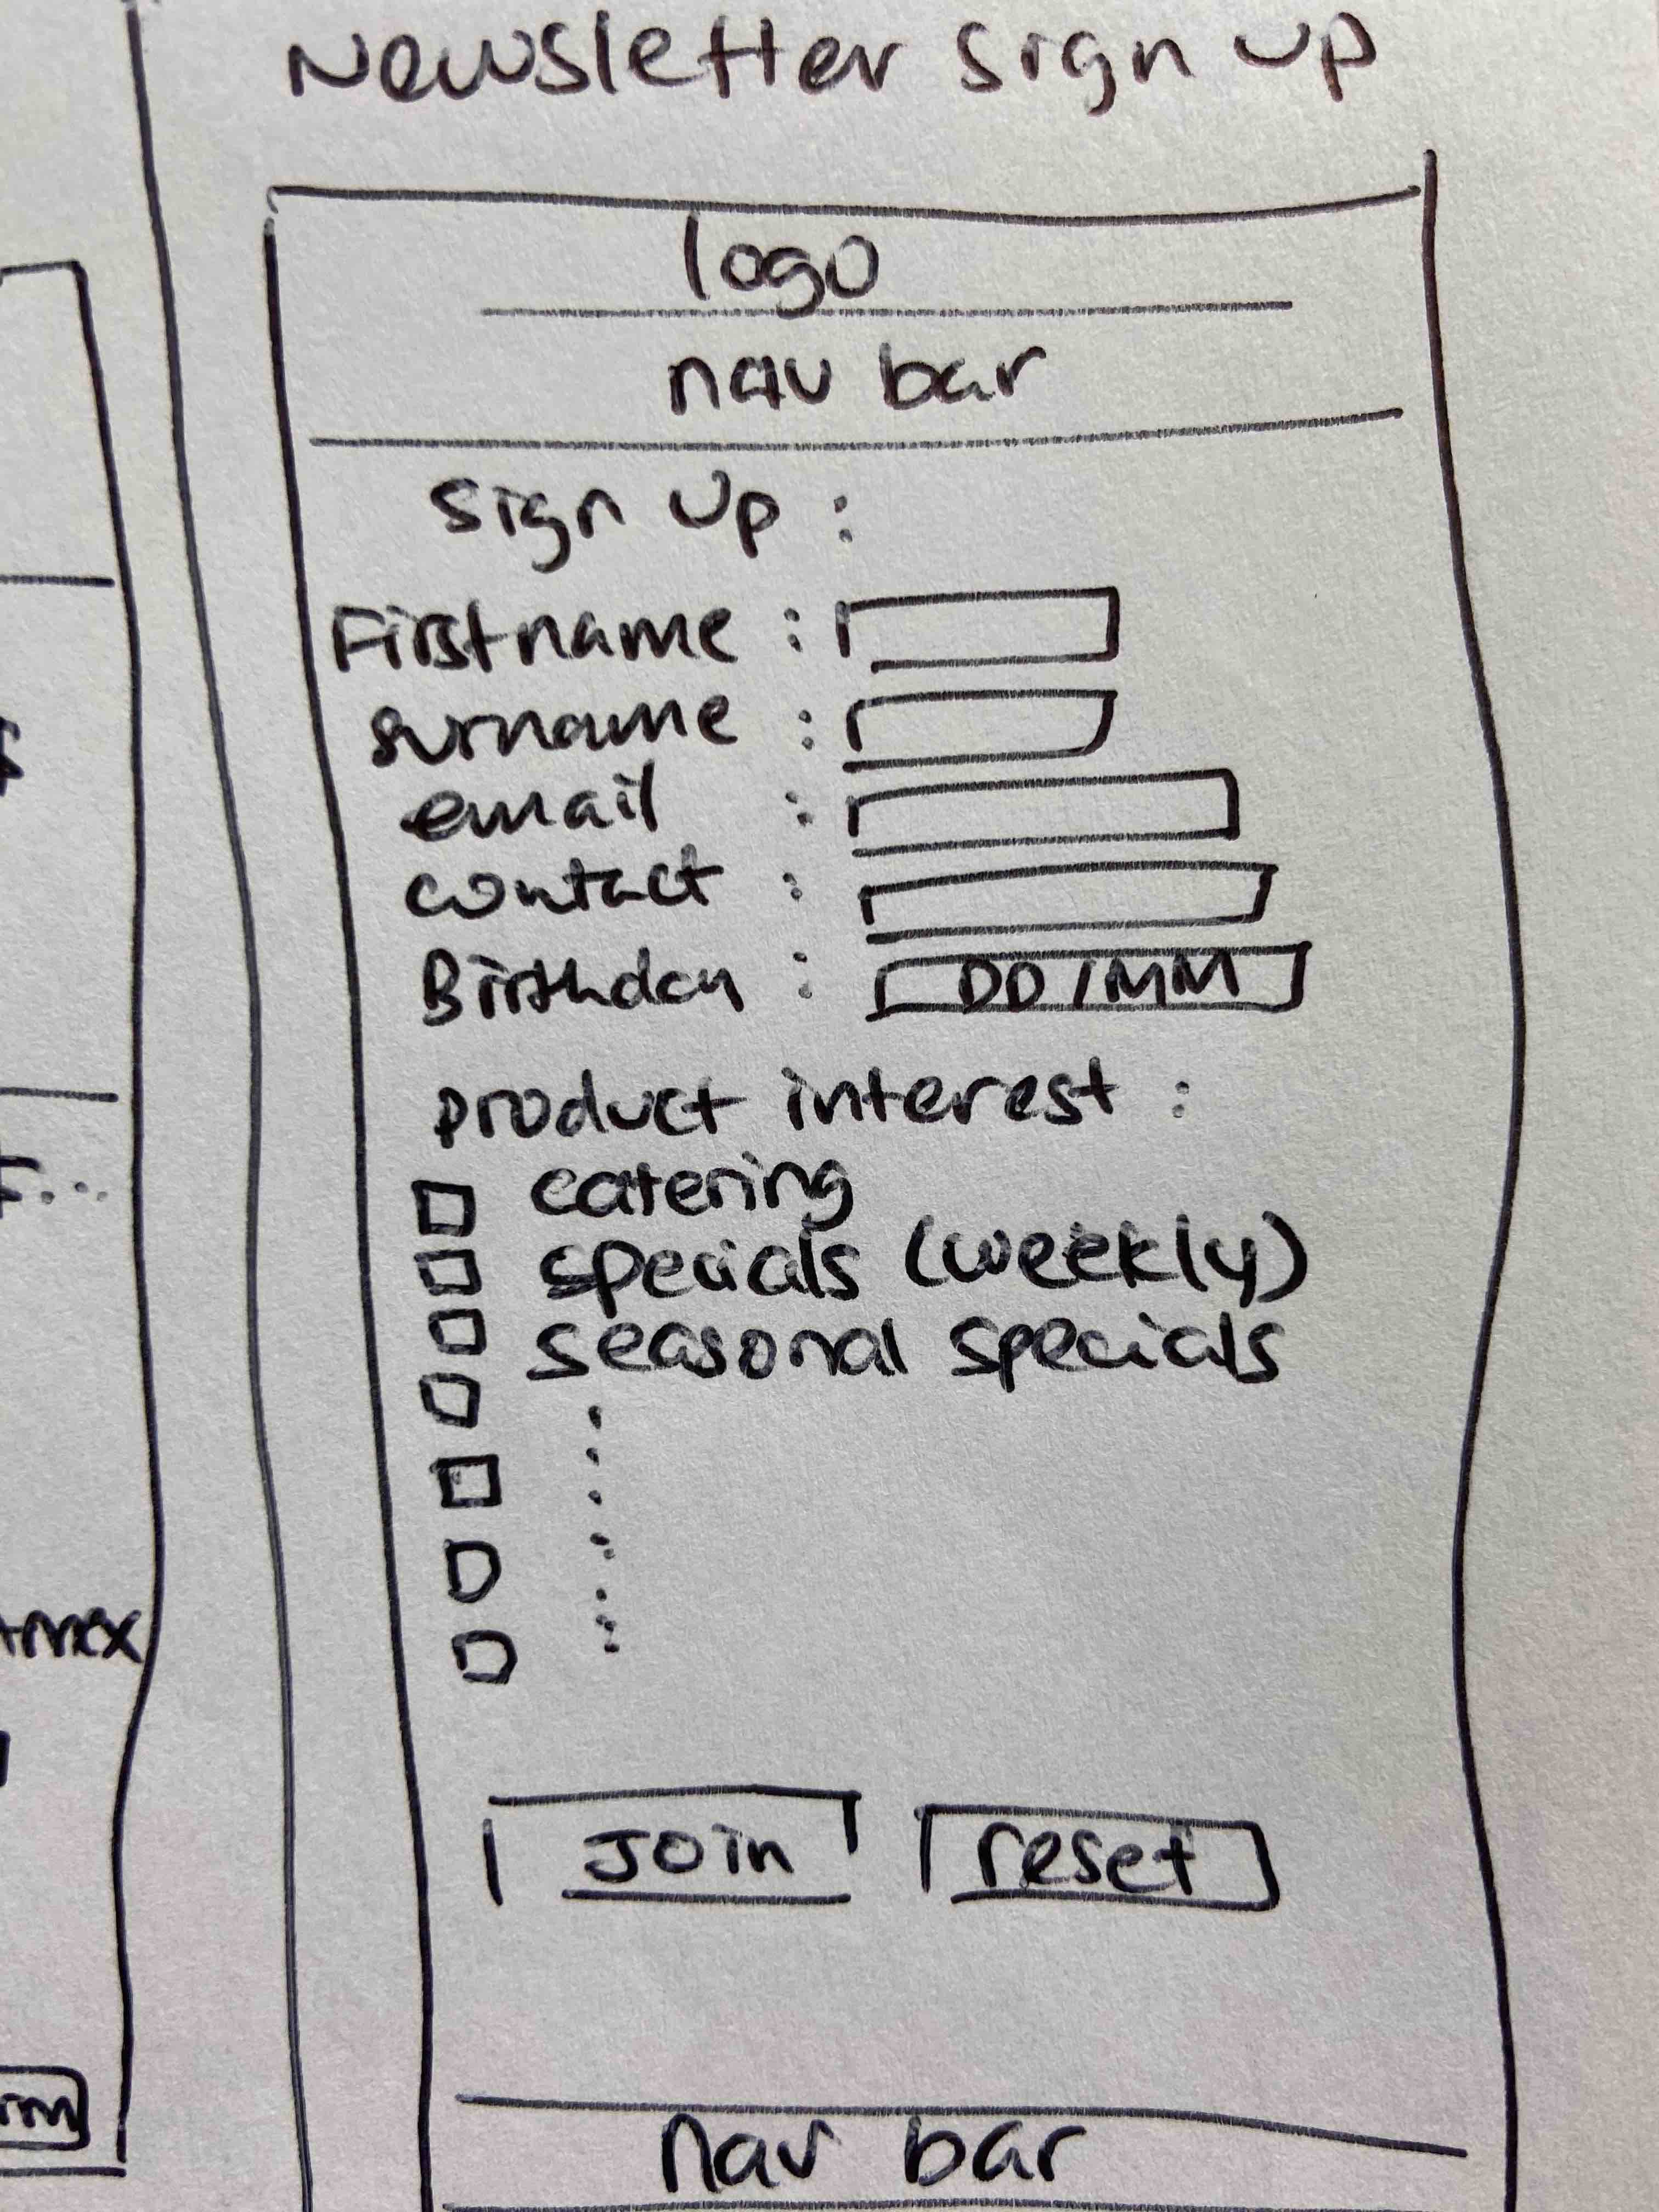 Newsletter sign up
logo
nav bar
sign up :
Firstname :
surname :
email :
contact :
Birthday : DD/MM
product interest :
catering
specials (weekly)
seasonal specials
Join reset
nav bar
Amex